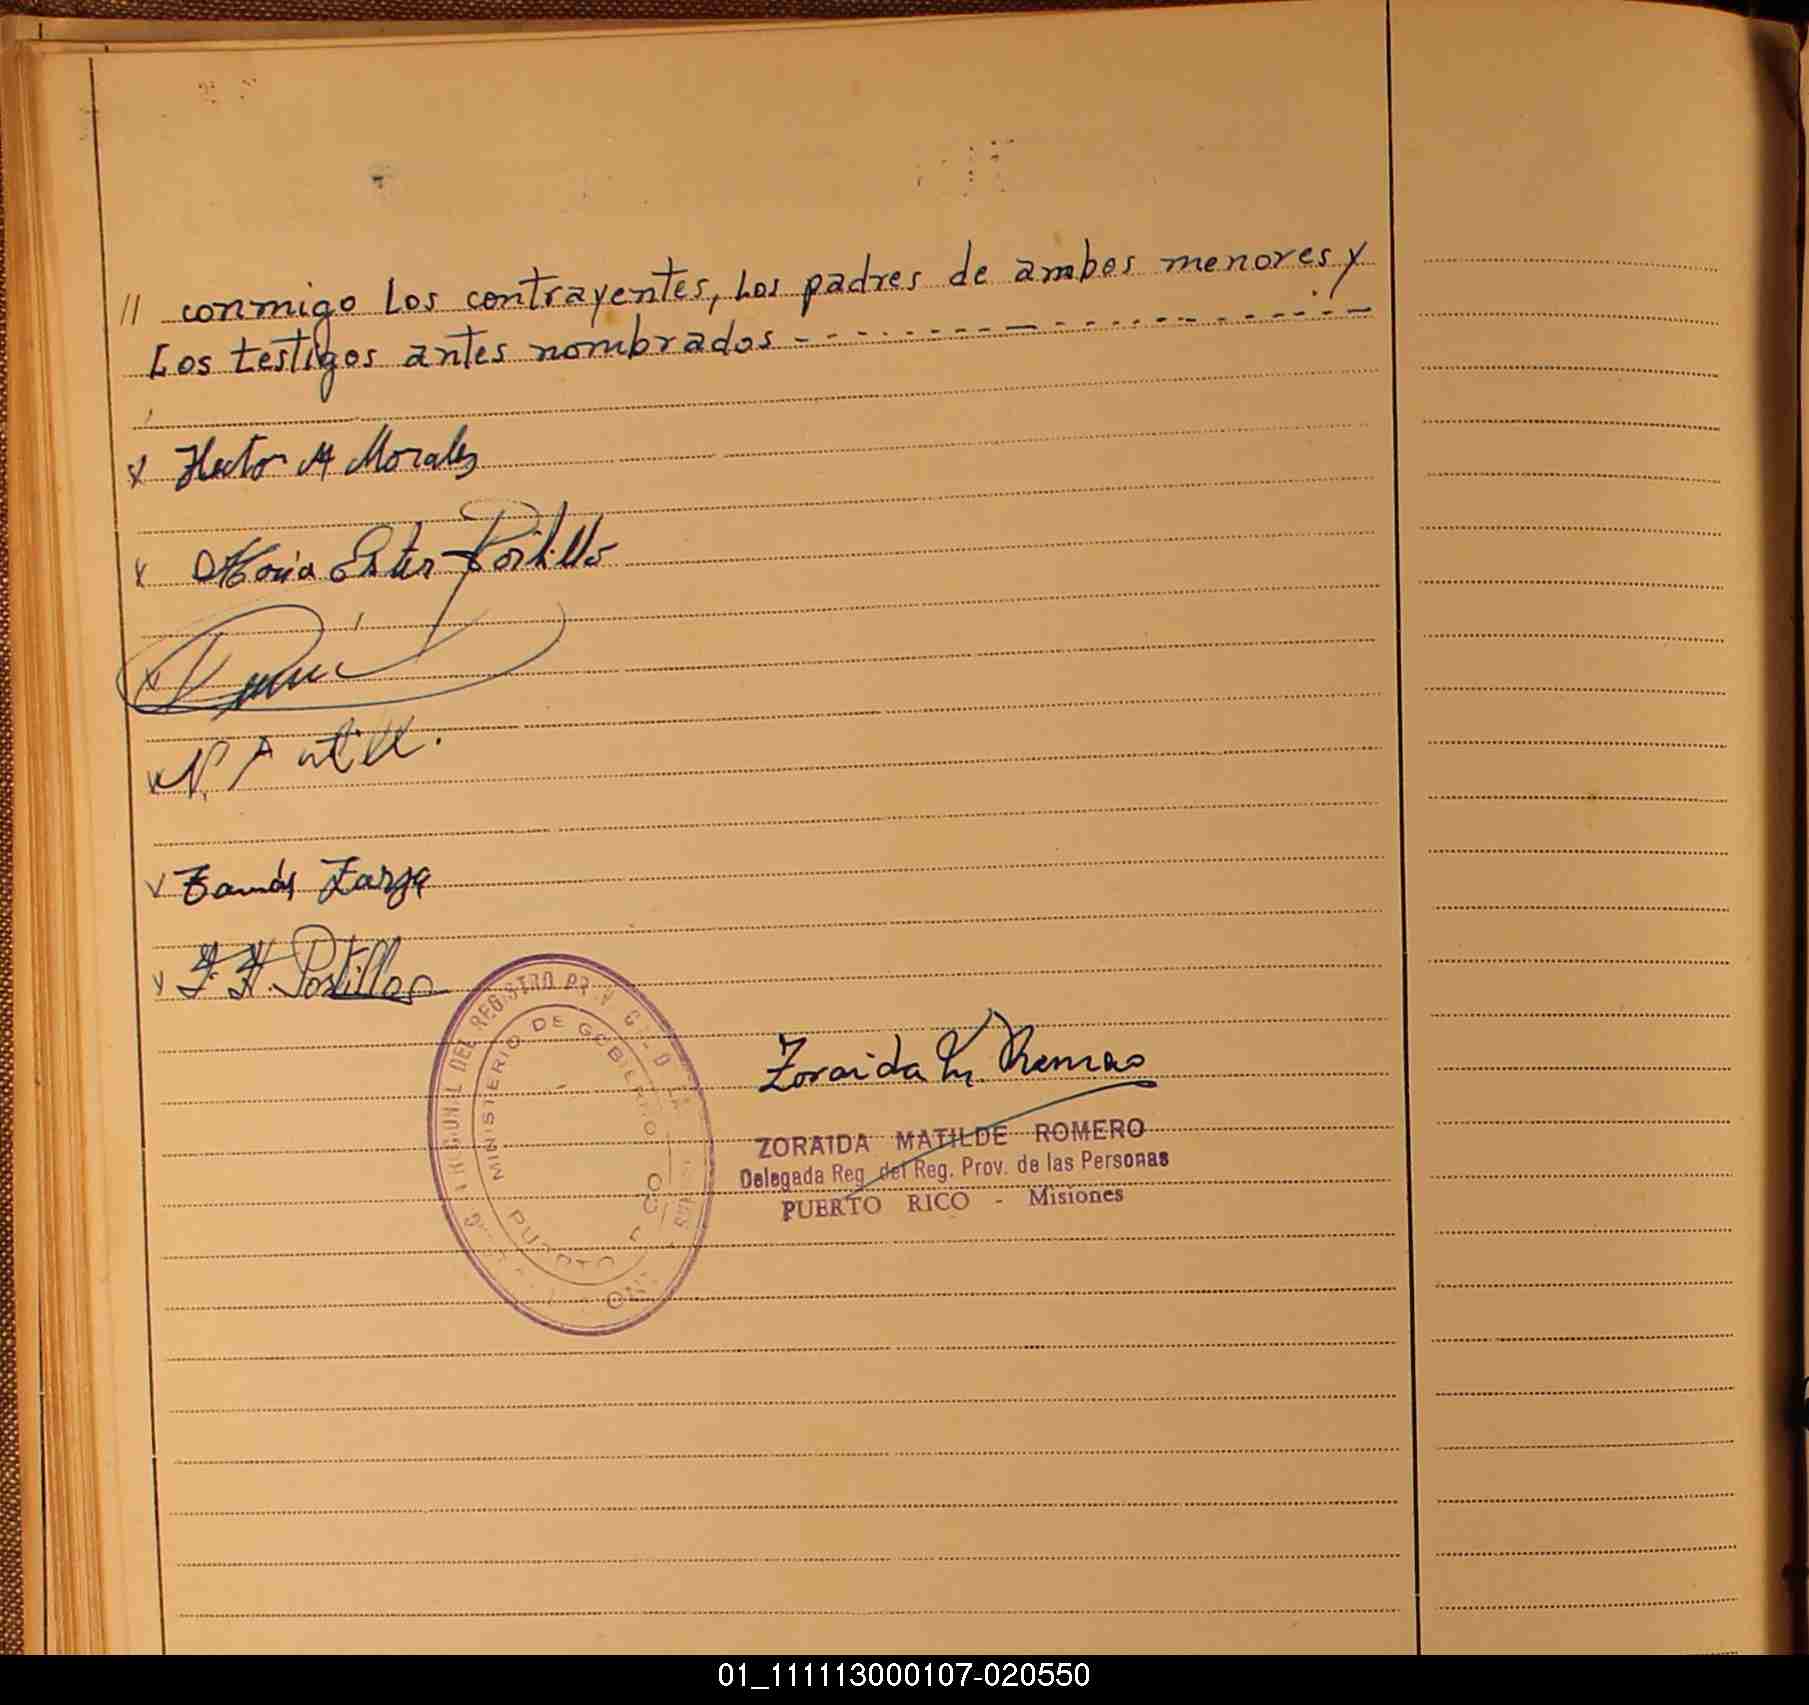 // conmigo Los contrayentes, Los padres de ambos menores y
Los testigos antes nombrados - - - - - - - - - - - - - - - - -
x Hector A Morales
x Maria Ester Portillo
x
x N.
v Tomás
v F. H. Portillo
DEL REGISTRO
MINISTERIO DE GOBIERNO
PUERTO
Zoraida M. Romero
ZORAIDA MATILDE ROMERO
Delegada Reg. del Reg. Prov. de las Personas
PUERTO RICO - Misiones
01_111113000107-020550